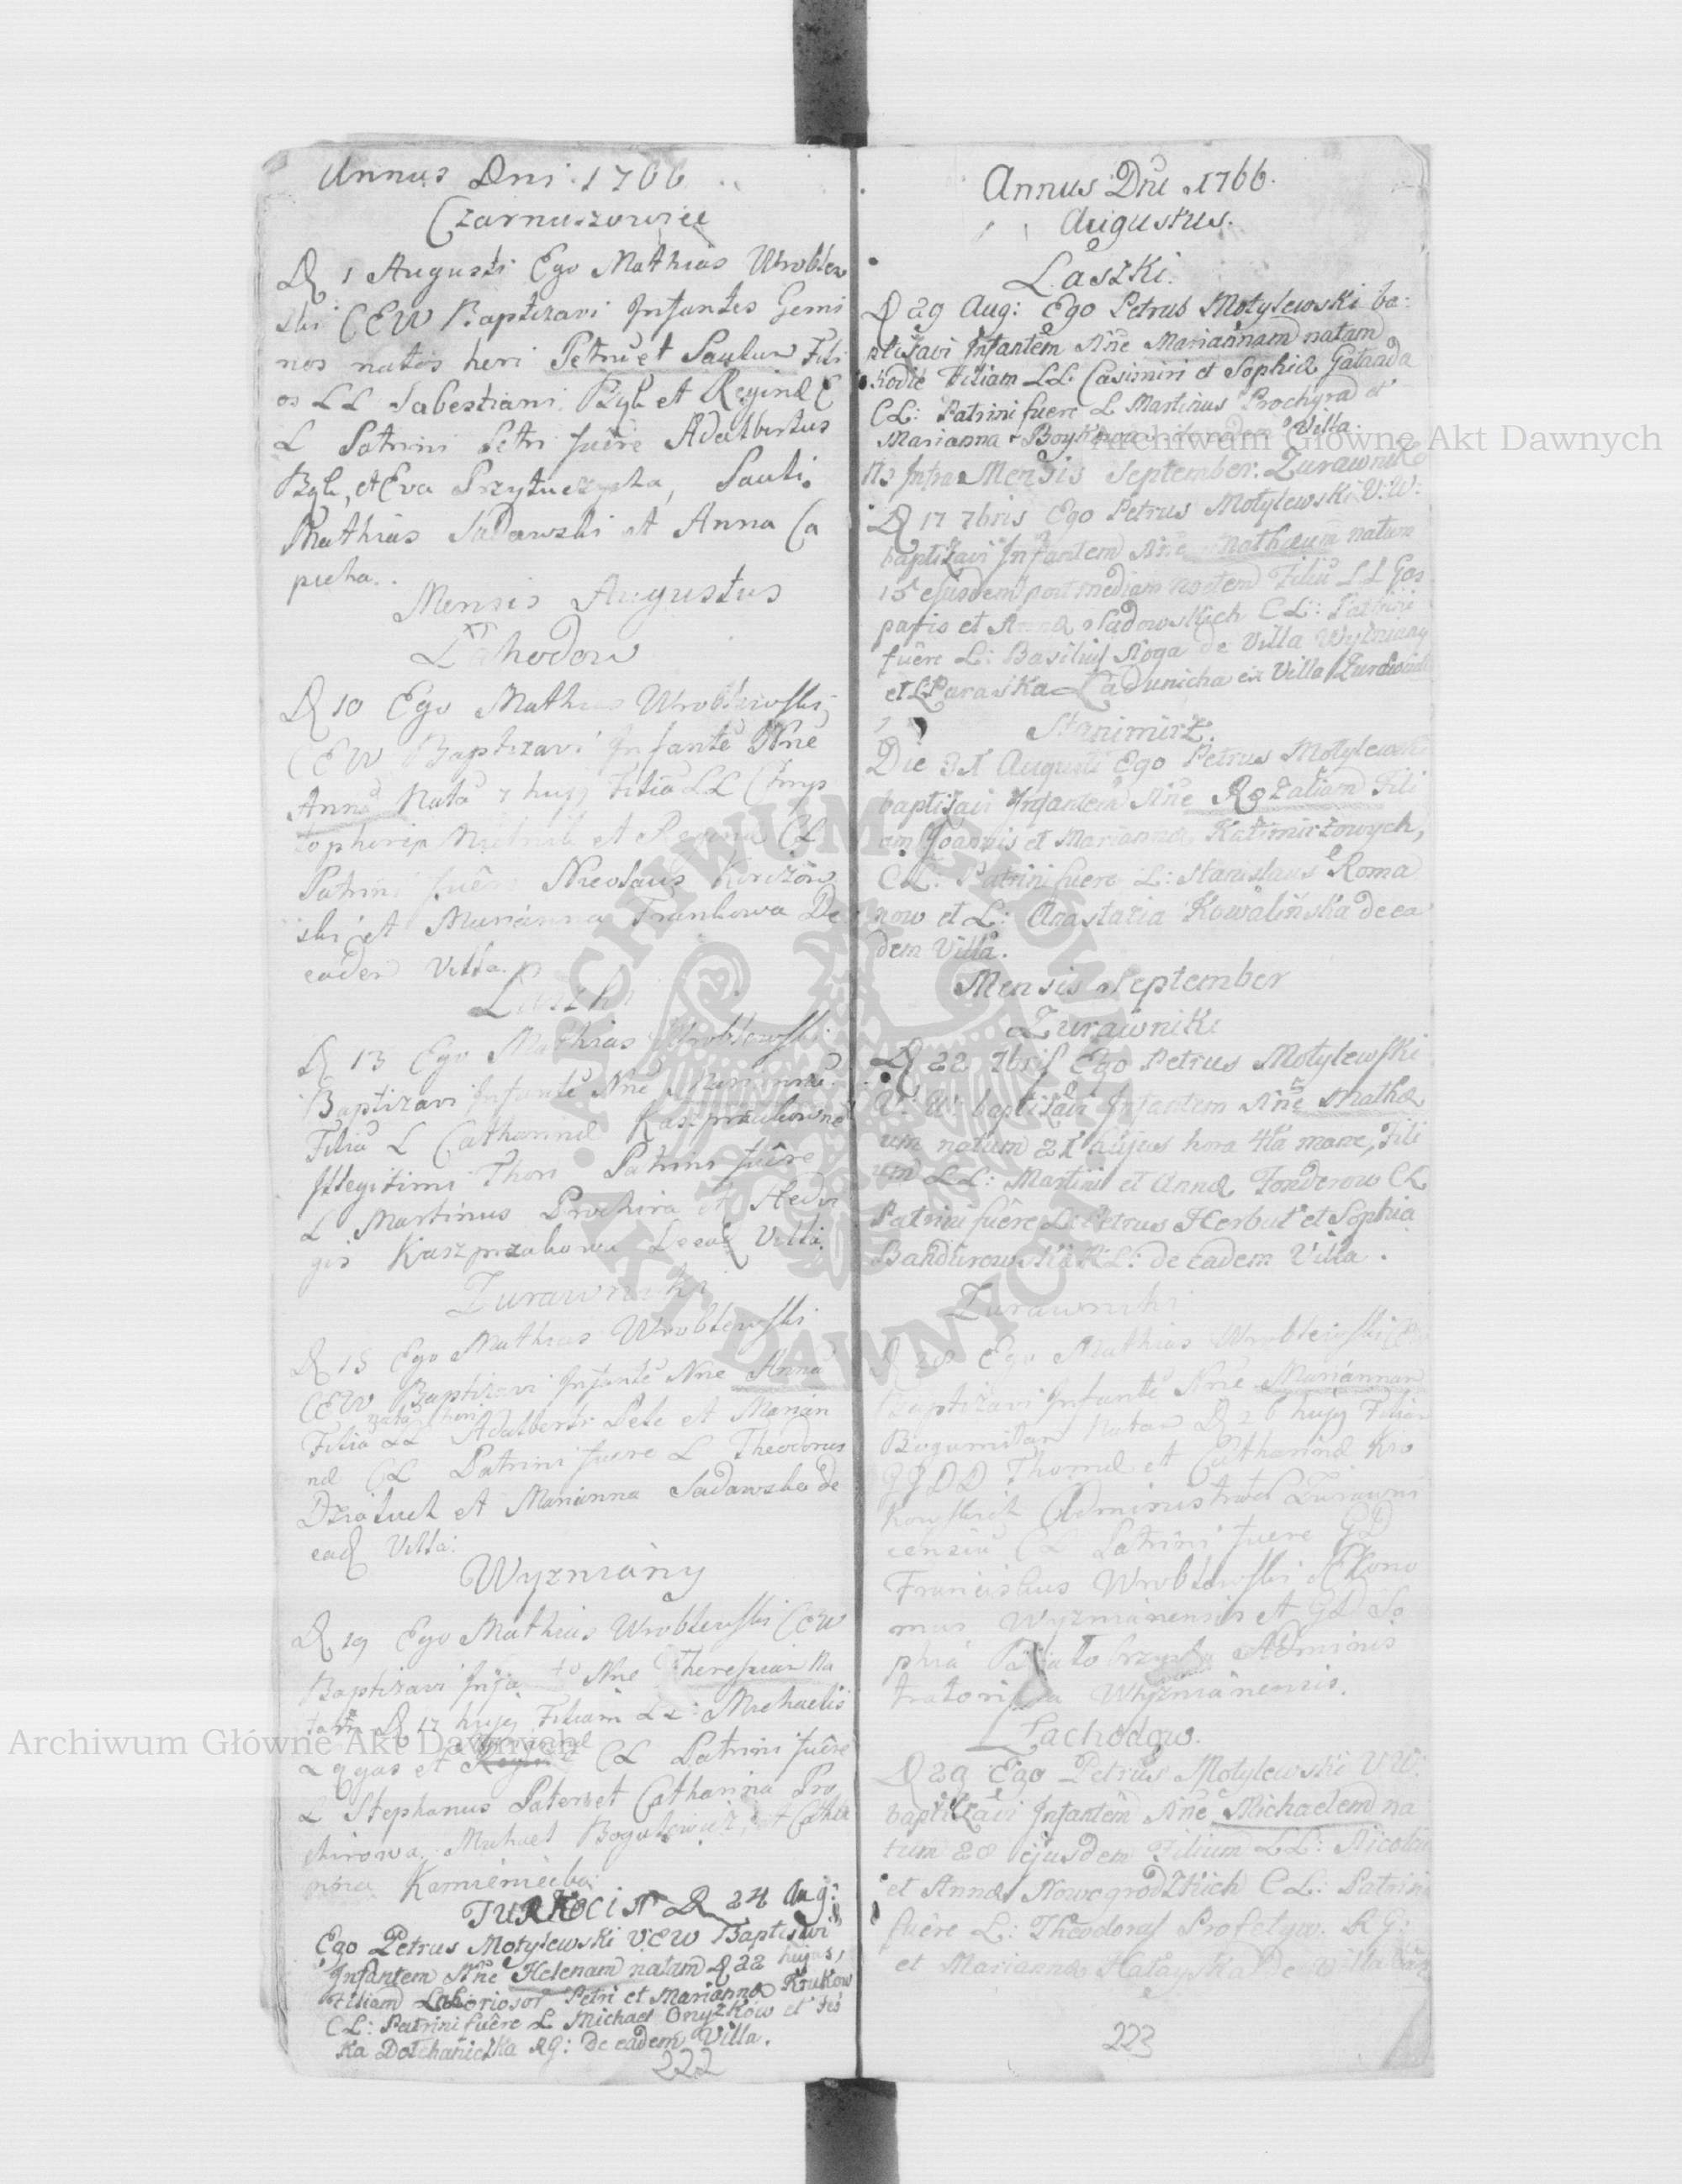 Annus Dni 1766
Czarnuszowice
D 1 Augusti Ego Mathias Wroblew
ski CEW Baptizavi Infantes Gemi
nos natos heri Petrū et Paulum Fili
os LL Sabestiani Bylı et Reginæ C
L Patrini Petri fuêre Adalbertus
et Eva Pauli
Mathias Sadowski et Anna Ca
pucha.
Mensis Augustus
Lahodow
D 10 Ego Mathias Wroblewski
CEW Baptizavi Infantē Nne
Annā Natā 7 huj9 Filiā LL Chrys
tophori et Reginæ CL
Patrini fuêre Nicolaus
ski et Marianna Frankowa De
eadem Villa.
Laszki
D 13 Ego Mathias Wroblewski
Baptizavi Infantē Nne Mariannā
Filiā L Catharinæ Kaszprzakowne
Illegitimi Thori Patrini fuêre
L Martinus Prochira et Hedvi
gis Kaszprzakowa De ead Villa.
Zurawniki
D 15 Ego Mathias Wroblewski
CEW Baptizavi Infantē Nne Annā
natā heri
Filiā LL Adalberti Pele et Marian
næ CL Patrini fuere L Theodorus
Dziatuch et Marianna Sadowska de
ead Villa.
Wyzniany
D 19 Ego Mathias Wroblewski CEW
Baptizavi Nne Theresiam Na
tam D 17 huj9 Filiam LL: Michaelis
Mariannæ
et CL Patrini fuêre
L Stephanus Pater et Catharina Pro
chirowa. Michael et Catha
rina Kamieniecka.
TURKOCIN D 24 Aug:
Ego Petrus Motylewski VEW Baptisavi
Infantem Nne Helenam natam D 22 hujus,
Filiam Laboriosor Petri et Mariannæ Krukow
CL: Patrini fuêre L Michael Onyzkow et Tes
ka Dolchaniczka RG: De eadem Villa.
222
Annus Dni 1766.
Augustus.
Laszki.
D 29 Aug: Ego Petrus Motylewski ba:
ptisavi Infantem Nne Mariannam natam
hodie Filiam LL Casimiri et Sophiæ Galanda
CL: Patrini fuere L Martinus Prochyra et
Marianna Villa.
Infra Mensis September: Zurawnik
D 17 7bris Ego Petrus Motylewski V:W:
baptizavi Infantem Nne Mathæum natum
15 ejusdem post mediam noctem Filiū LL Gas
paris et Annæ Sadowskich CL: Patrini
fuêre L: Basilius Noga de Villa Wyzniany
et L Paraska Ladunicha ex Villa Zurawniki
Stanimirz.
Die 31 Augusti Ego Petrus Motylewski
baptisavi Infantem Nne Rozaliam Fili
am Joannis et Mariannæ Katimirzowych,
CL: Patrini fuere L: Stanislaus Roma
now et L: Anastazia Kowalińska de ea
dem Villa.
Mensis September
Zurawniki
D 22 7bris Ego Petrus Motylewski
V: W: baptisavi Infantem Nne Mathæ
um natum 21 hujus hora 4ta mane, Fili
um LL: Martini et Annæ Fonderow CL
Patrini fuêre L: Petrus Herbut et Sophia
Bandurowska RL: de eadem Villa.
Zurawniki
D 28 Ego Mathias Wroblewski
Baptizavi Infantē Nne Mariannam
Bogumilam Natam D 26 huj9 Filiam
GGDD Thomæ et Catharinæ
Administrator Zurawni
censiū CL Patrini fuere GD
Franciscus Wroblewski Økono
mus Wyznianensis et GD So
phia Adminis
tratorissa Wyznianensis.
Lachodow.
D 29 Ego Petrus Motylewski VW:
baptizavi Infantem Nne Michaelem na
tum 28 ejusdem Filium LL: Nicolai
et Annæ Nowogrodzkich CL: Patrini
fuêre L: Theodorus Profetyw. RG:
et Marianna Hatayska De Villa
223
Archiwum Główne Akt Dawnych
Archiwum Główne Akt Dawnych
ARCHIWUM GŁÓWNE
AKT DAWNYCH